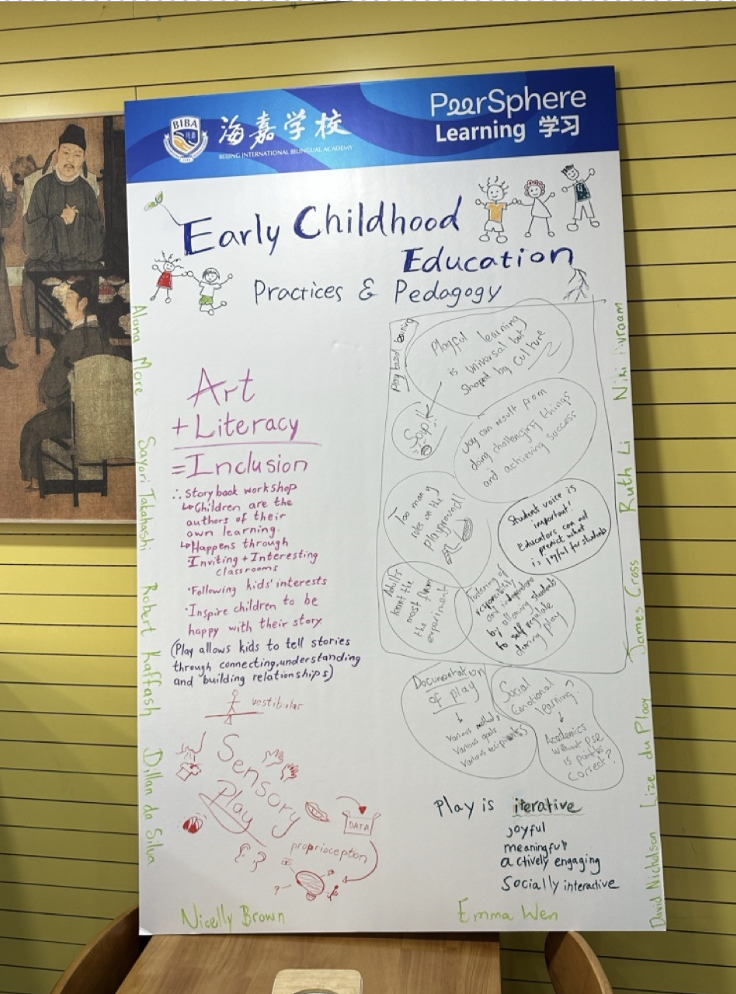 BIBA
海嘉学校
BEIJING INTERNATIONAL BILINGUAL ACADEMY
PeerSphere
Learning 学习
Early Childhood
Education
Practices & Pedagogy
Art
+ Literacy
= Inclusion
∴ Story book workshop
↳ Children are the
authors of their
own learning.
↳ Happens through
Inviting + Interesting
classrooms
· Following kids' interests
· Inspire children to be
happy with their story
(Play allows kids to tell stories
through connecting, understanding
and building relationships)
vestibular
Sensory
Play
DATA
proprioception
Play based learning
Playful learning
is universal but
shaped by culture
Joy can result from
doing challenging things
and achieving success
Too many
rules on the
playground!
Student voice is
important!
Educators can not
predict what
is joyful for students
Adults
the
most from
the
experiment
Fostering of
responsibility
and independence
by allowing students
to self regulate
during play
Documentation
of play
↓
Various methods
Various goals
Various
Social
Emotional
learning?
↓
Academics
without PSE
is
correct?
Play is iterative
joyful
meaningful
actively engaging
Socially interactive
Alana More
Sayori Takahashi
Robert Kaffash
Dillan da Silva
Nicelly Brown
Emma Wen
David Nicholson
Lize du Plooy
James Cross
Ruth Li
Niki